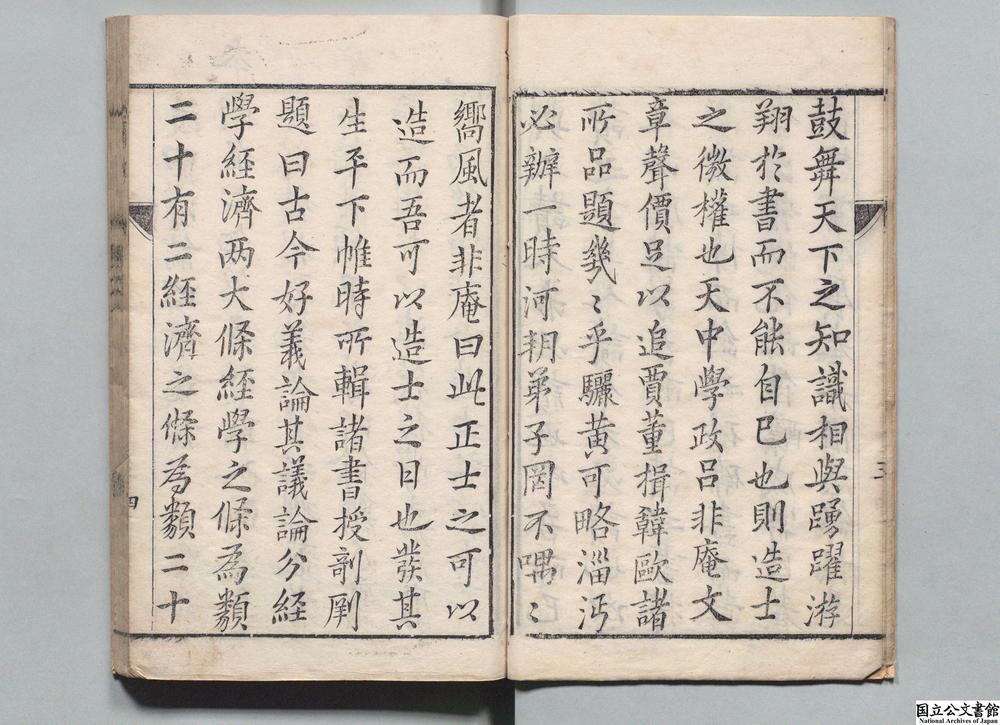 鼓舞天下之知識相與踴躍游
翔於書而不能自已也則造士
之微權也天中學政吕非庵文
章聲價足以追賈董揖韓歐諸
所品題㡬〻乎驪黄可略淄沔
必辦一時河朔弟子罔不喁〻
三
嚮風者非庵曰此正士之可以
造而吾可以造士之日也發其
生平下帷時所輯諸書授剞劂
題曰古今好義論其議論分經
學經濟两大條經學之條為類
二十有二經濟之條為類二十
四
国立公文書館
National Archives of Japan